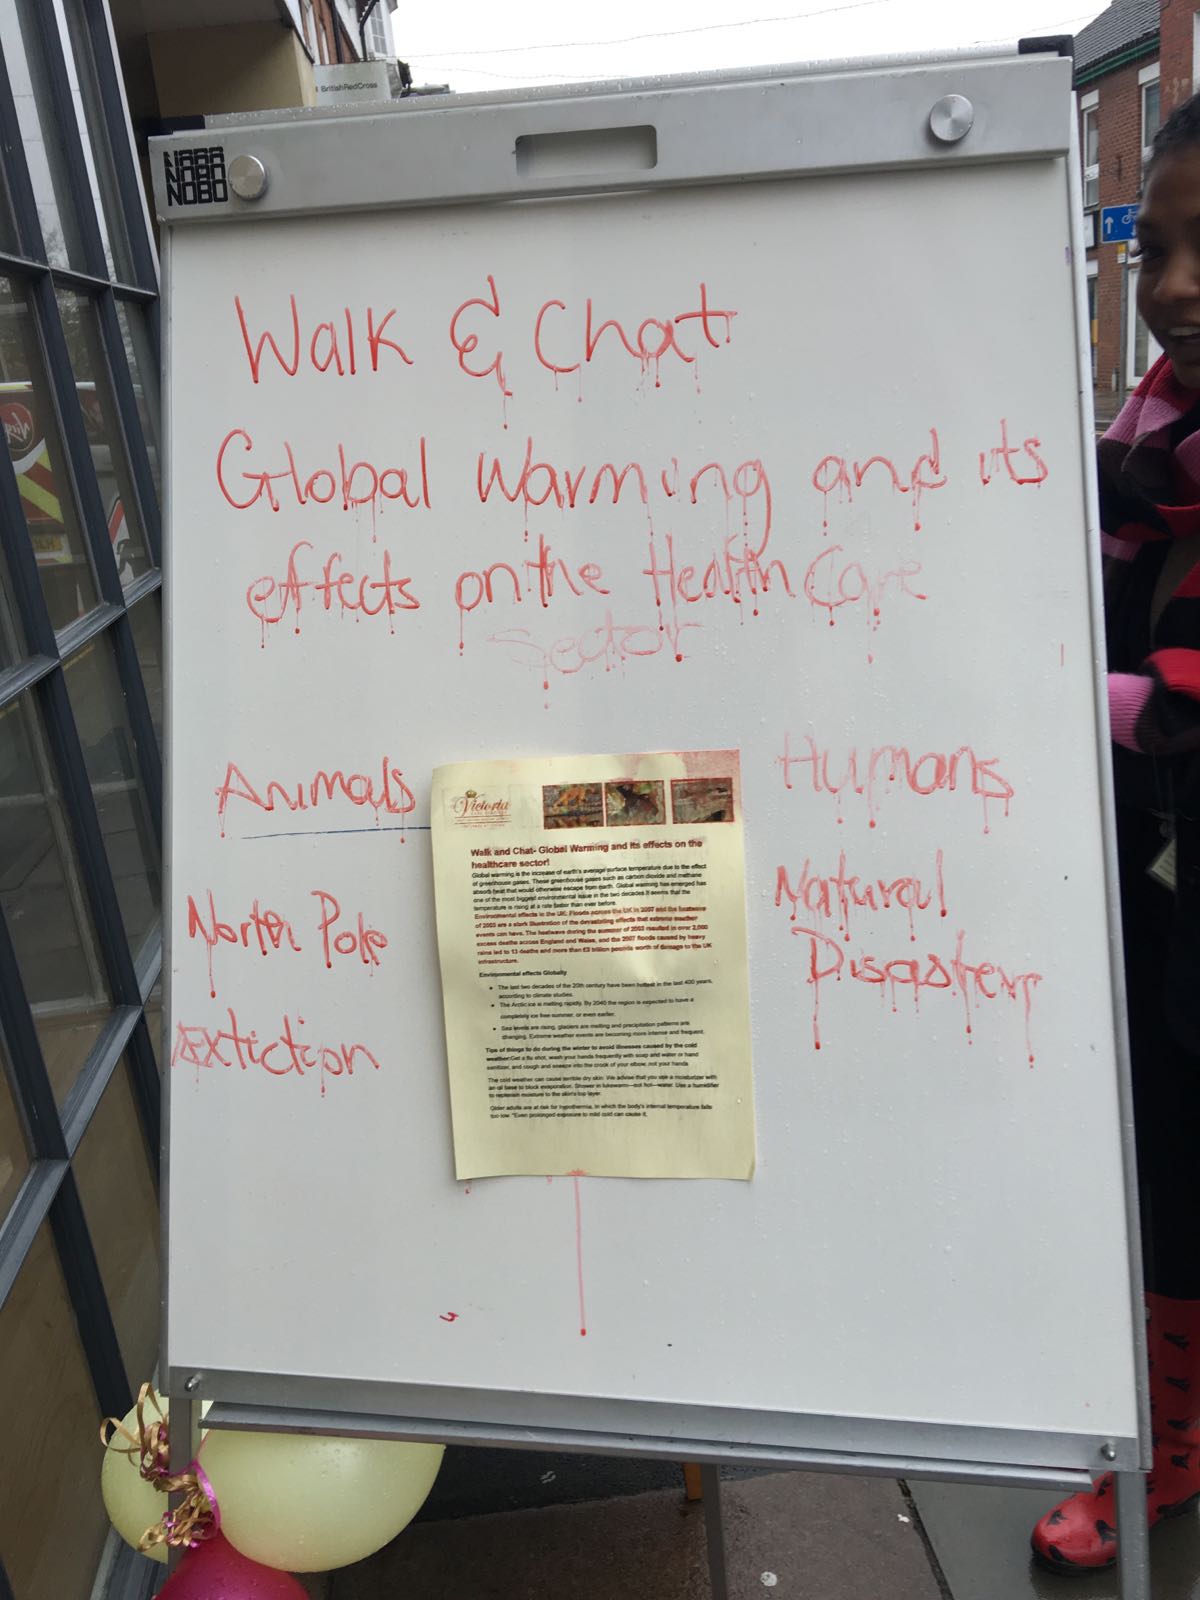 BritishRedCross
NOBO
NOBO
NOBO
Walk & Chat
Global Warming and its
effects on the Health Care
Sector
Animals
Humans
North Pole
Extiction
Natural
Disasters
Victoria
Walk and Chat- Global Warming and its effects on the
healthcare sector!
Global warming is the increase of earth's average surface temperature due to the effect
of greenhouse gases. These greenhouse gases such as carbon dioxide and methane
absorb heat that would otherwise escape from earth. Global warming has emerged has
one of the most biggest environmental issue in the two decades it seems that the
temperature is rising at a rate faster than ever before.
Environmental effects in the UK. Floods across the UK in 2007 and the heatwave
of 2003 are a stark illustration of the devastating effects that extreme weather
events can have. The heatwave during the summer of 2003 resulted in over 2,000
excess deaths across England and Wales, and the 2007 floods caused by heavy
rains led to 13 deaths and more than £3 billion pounds worth of damage to the UK
infrastructure.
Environmental effects Globally
• The last two decades of the 20th century have been hottest in the last 400 years,
according to climate studies.
• The Arctic ice is melting rapidly. By 2040 the region is expected to have a
completely ice free summer, or even earlier.
• Sea levels are rising, glaciers are melting and precipitation patterns are
changing. Extreme weather events are becoming more intense and frequent.
Tips of things to do during the winter to avoid illnesses caused by the cold
weather:Get a flu shot, wash your hands frequently with soap and water or hand
sanitizer, and cough and sneeze into the crook of your elbow, not your hands
The cold weather can cause terrible dry skin. We advise that you use a moisturizer with
an oil base to block evaporation. Shower in lukewarm—not hot—water. Use a humidifier
to replenish moisture to the skin's top layer.
Older adults are at risk for hypothermia, in which the body's internal temperature falls
too low. "Even prolonged exposure to mild cold can cause it.